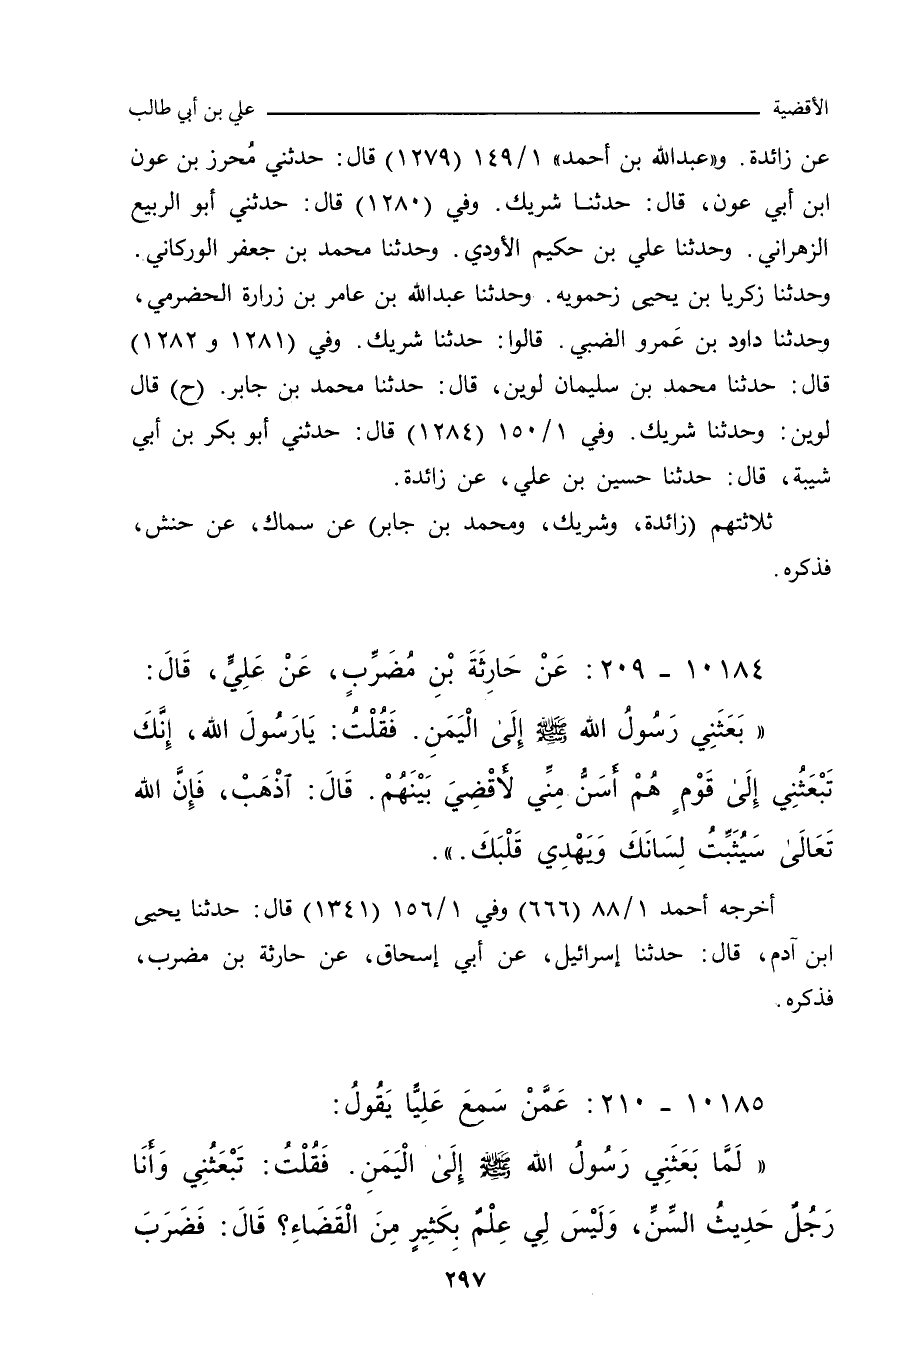 الأقضية ـــــــــــــــــ علي بن أبي طالب
عن زائدة. و«عبدالله بن أحمد» ١٤٩/١ (١٢٧٩) قال: حدثني مُحرز بن عون
ابن أبي عون، قال: حدثنا شريك. وفي (١٢٨٠) قال: حدثني أبو الربيع
الزهراني. وحدثنا علي بن حكيم الأودي. وحدثنا محمد بن جعفر الوركاني.
وحدثنا زكريا بن يحيى زحمويه. وحدثنا عبدالله بن عامر بن زرارة الحضرمي،
وحدثنا داود بن عَمرو الضبي. قالوا: حدثنا شريك. وفي (١٢٨١ و ١٢٨٢)
قال: حدثنا محمد بن سليمان لوين، قال: حدثنا محمد بن جابر. (ح) قال
لوين: وحدثنا شريك. وفي ١٥٠/١ (١٢٨٤) قال: حدثني أبو بكر بن أبي
شيبة، قال: حدثنا حسين بن علي، عن زائدة.
ثلاثتهم (زائدة، وشريك، ومحمد بن جابر) عن سماك، عن حنش،
فذكره.
١٠١٨٤ - ٢٠٩: عَنْ حَارِثَةَ بْنِ مُضَرِّبٍ، عَنْ عَلِيٍّ، قَالَ:
« بَعَثَنِي رَسُولُ الله ﷺ إِلَىٰ الْيَمَنِ. فَقُلْتُ: يَارَسُولَ الله، إِنَّكَ
تَبْعَثُنِي إِلَىٰ قَوْمٍ هُمْ أَسَنُّ مِنِّي لأَقْضِيَ بَيْنَهُمْ. قَالَ: ٱذْهَبْ، فَإِنَّ الله
تَعَالَىٰ سَيُثَبِّتُ لِسَانَكَ وَيَهْدِي قَلْبَكَ.».
أخرجه أحمد ٨٨/١ (٦٦٦) وفي ١٥٦/١ (١٣٤١) قال: حدثنا يحيى
ابن آدم، قال: حدثنا إسرائيل، عن أبي إسحاق، عن حارثة بن مضرب،
فذكره.
١٠١٨٥ - ٢١٠: عَمَّنْ سَمِعَ عَلِيًّا يَقُولُ:
« لَمَّا بَعَثَنِي رَسُولُ الله ﷺ إِلَىٰ الْيَمَنِ. فَقُلْتُ: تَبْعَثُنِي وَأَنَا
رَجُلٌ حَدِيثُ السِّنِّ، وَلَيْسَ لِي عِلْمٌ بِكَثِيرٍ مِنَ الْقَضَاءِ؟ قَالَ: فَضَرَبَ
٢٩٧